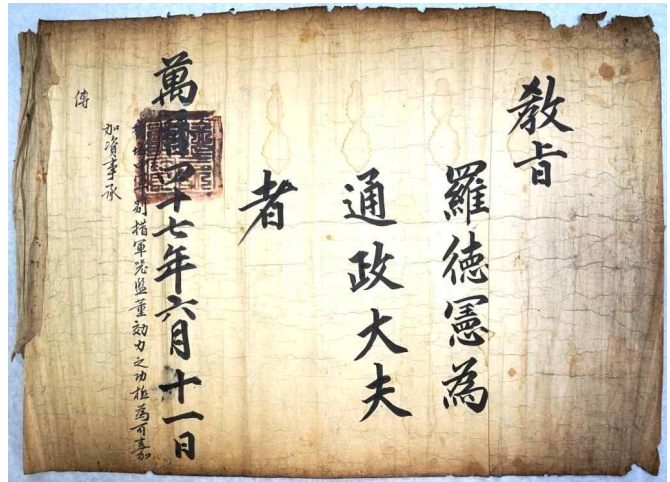 教旨
羅徳憲爲
通政大夫
者
萬曆四十七年六月十一日
別措軍器監董効力之功極爲可嘉
加資事承
傳